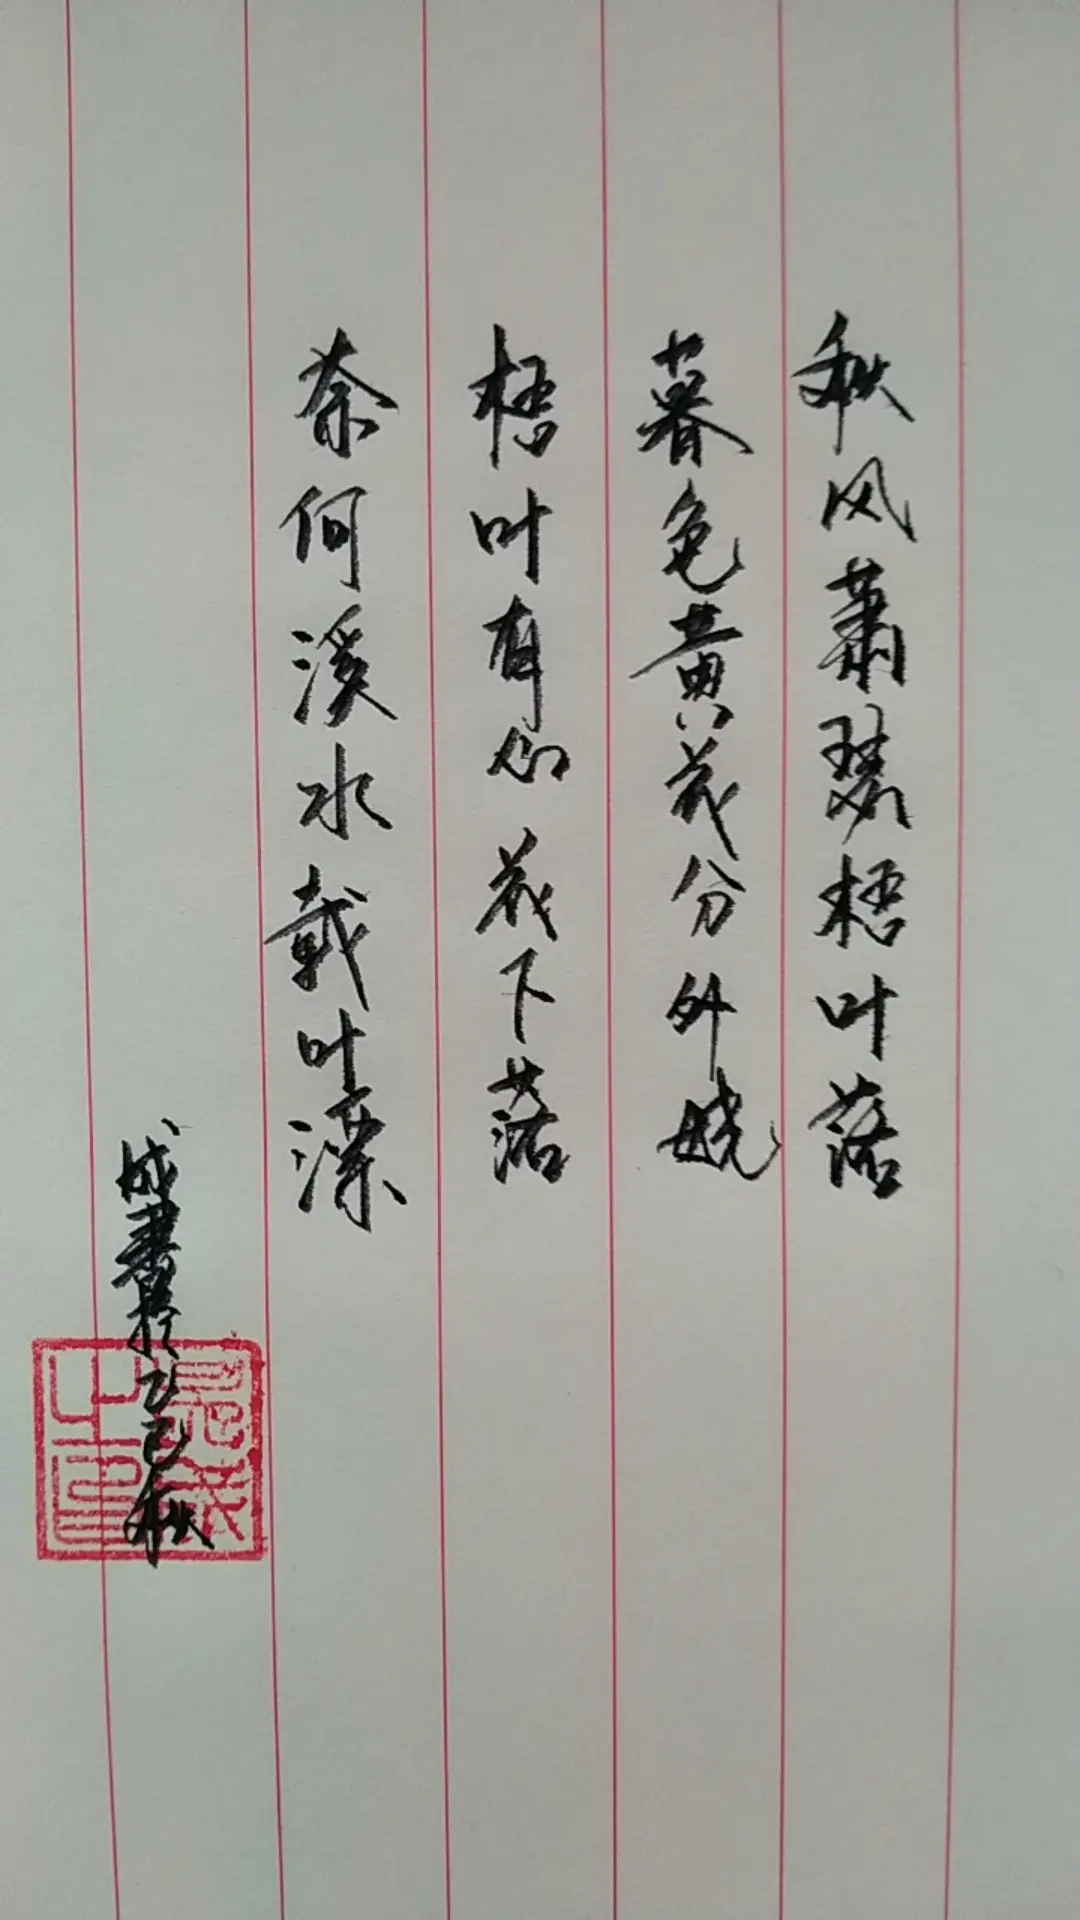 秋风萧瑟梧叶落
暮色黄花分外娆
梧叶有心花下落
奈何溪水载叶漂
成书於乙巳秋